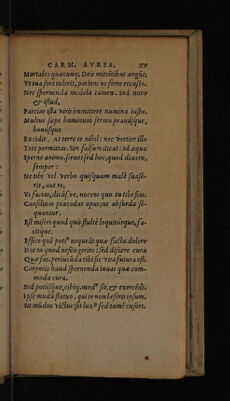 CARM. AVREA. XV
Mortales quacunq; Deis mittẽtibus angũt;
Vt tua sors tulerit, patiens ne ferre recuses.
Nec spernenda medela tamen. Sed noris
& istud,
Parcius ista viris immittere numina iustis.
Multus sæpe hominum sermo prauusque,
bonusque
Excidit. At terrere te nihil: nec vertier illo
Te permittas. Sin falsum dicat: id æquo
Sperne animo. serues sed hoc, quod dixero,
semper:
Ne tibi vel verbo quisquam malè suase-
rit, aut re,
Vt facias, dicásve, nocent quo tu tibi fias.
Consilium præcedat opus; ne absurda se-
quantur.
Est miseri quod quis stultè loquiturque, fa-
citque.
Effice quod post nequeãt quæ facta dolere
Nec tu quod nescis gerito: sed discere cura
Quæ sas. periucũda tibi sic vita futura est.
Corporis haud spernenda inuat quæ com-
moda cura.
Sed potusque, cibiq; modus sit, & exercẽdi.
Ipsi modũ statuo, qui te non læserit ipsum.
Sit mũdus victus; sit luxus sed tamẽ exsors.